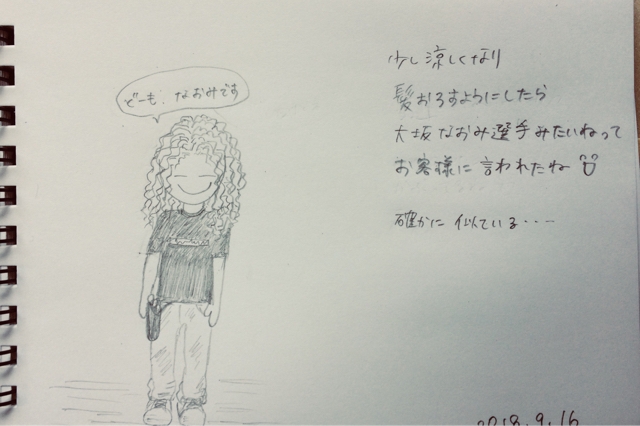 どーも、なおみです
少し涼しくなり
髪おろすようにしたら
大坂なおみ選手みたいねって
お客様に言われたね
確かに似ている・・・・
2018.9.16